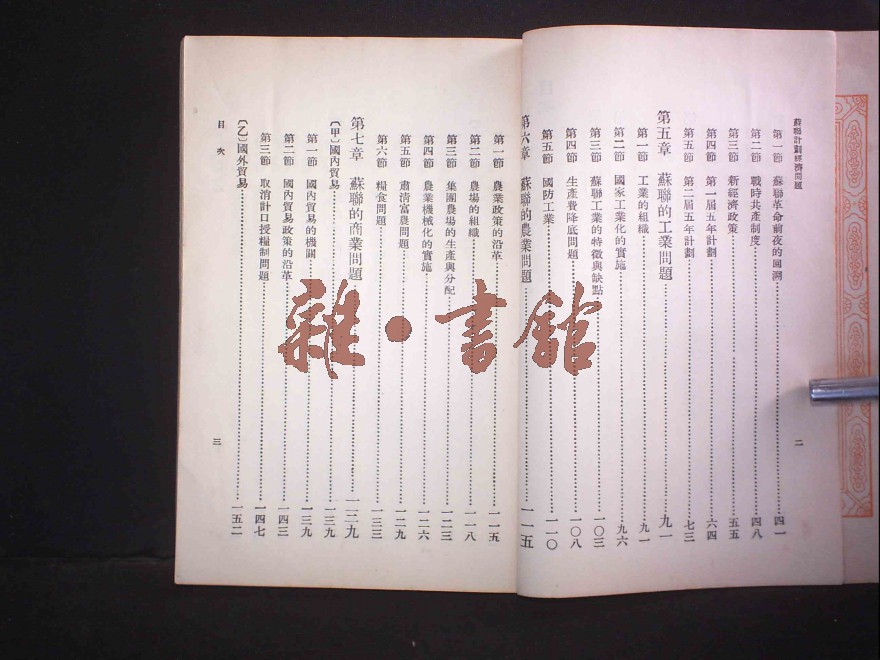 蘇聯計劃經濟問題
第一節 蘇聯革命前夜的回溯 四一
第二節 戰時共產制度 四八
第三節 新經濟政策 五五
第四節 第一屆五年計劃 六四
第五節 第二屆五年計劃 七三
第五章 蘇聯的工業問題 九一
第一節 工業的組織 九一
第二節 國家工業化的實施 九六
第三節 蘇聯工業的特徵與缺點 一〇三
第四節 生產費降底問題 一〇八
第五節 國防工業 一一〇
第六章 蘇聯的農業問題 一一五
二
第一節 農業政策的沿革 一一五
第二節 農場的組織 一一八
第三節 集團農場的生產與分配 一二三
第四節 農業機械化的實施 一二六
第五節 肅清富農問題 一二九
第六節 糧食問題 一三三
第七章 蘇聯的商業問題 一三九
〔甲〕國內貿易 一三九
第一節 國內貿易的機關 一三九
第二節 國內貿易政策的沿革 一四三
第三節 取消計口授糧制問題 一四七
〔乙〕國外貿易 一五二
目次
三
雜·書館